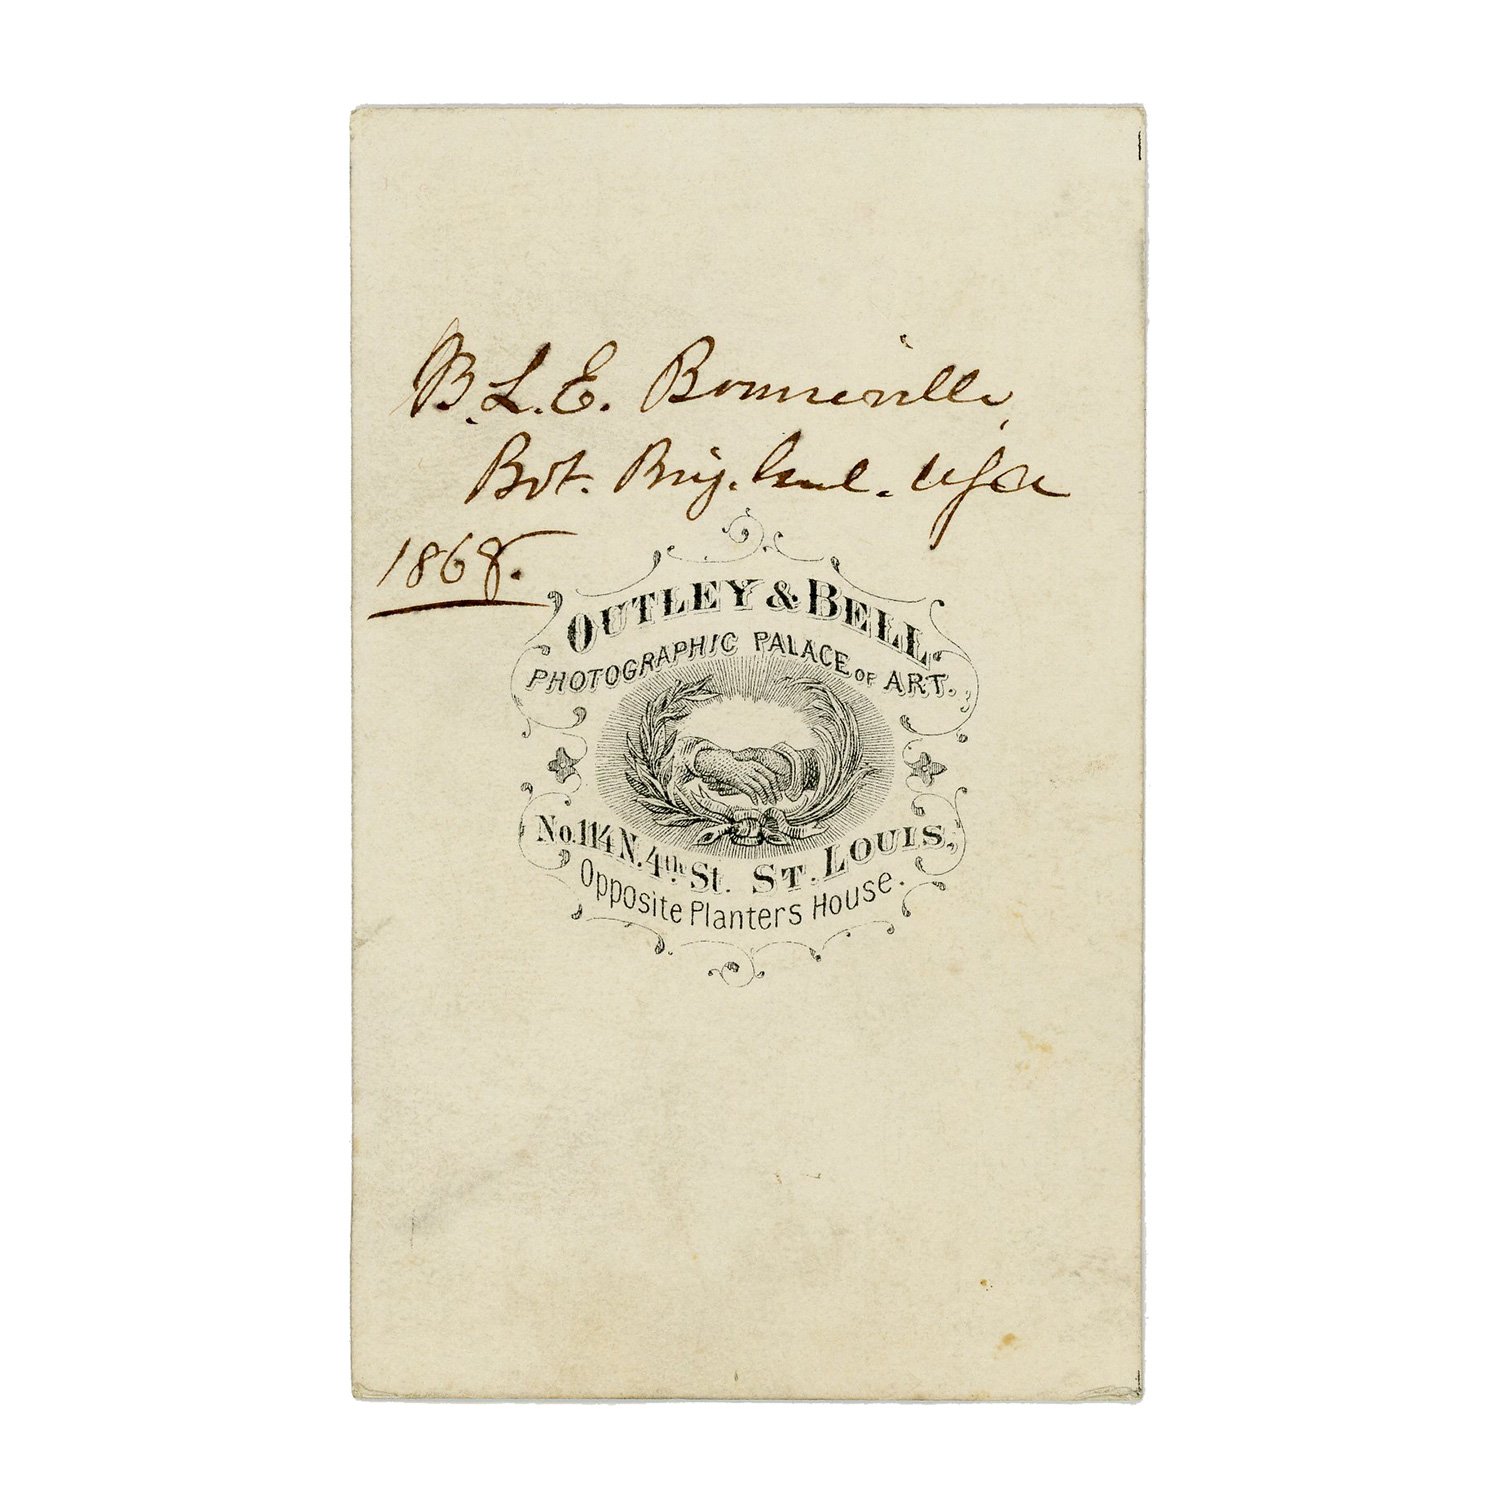 B. L. E. Bonneville,
Bvt. Brig. Genl. USA
1868.
OUTLEY & BELL.
PHOTOGRAPHIC PALACE OF ART.
No. 114 N. 4th St. ST. LOUIS,
Opposite Planters House.